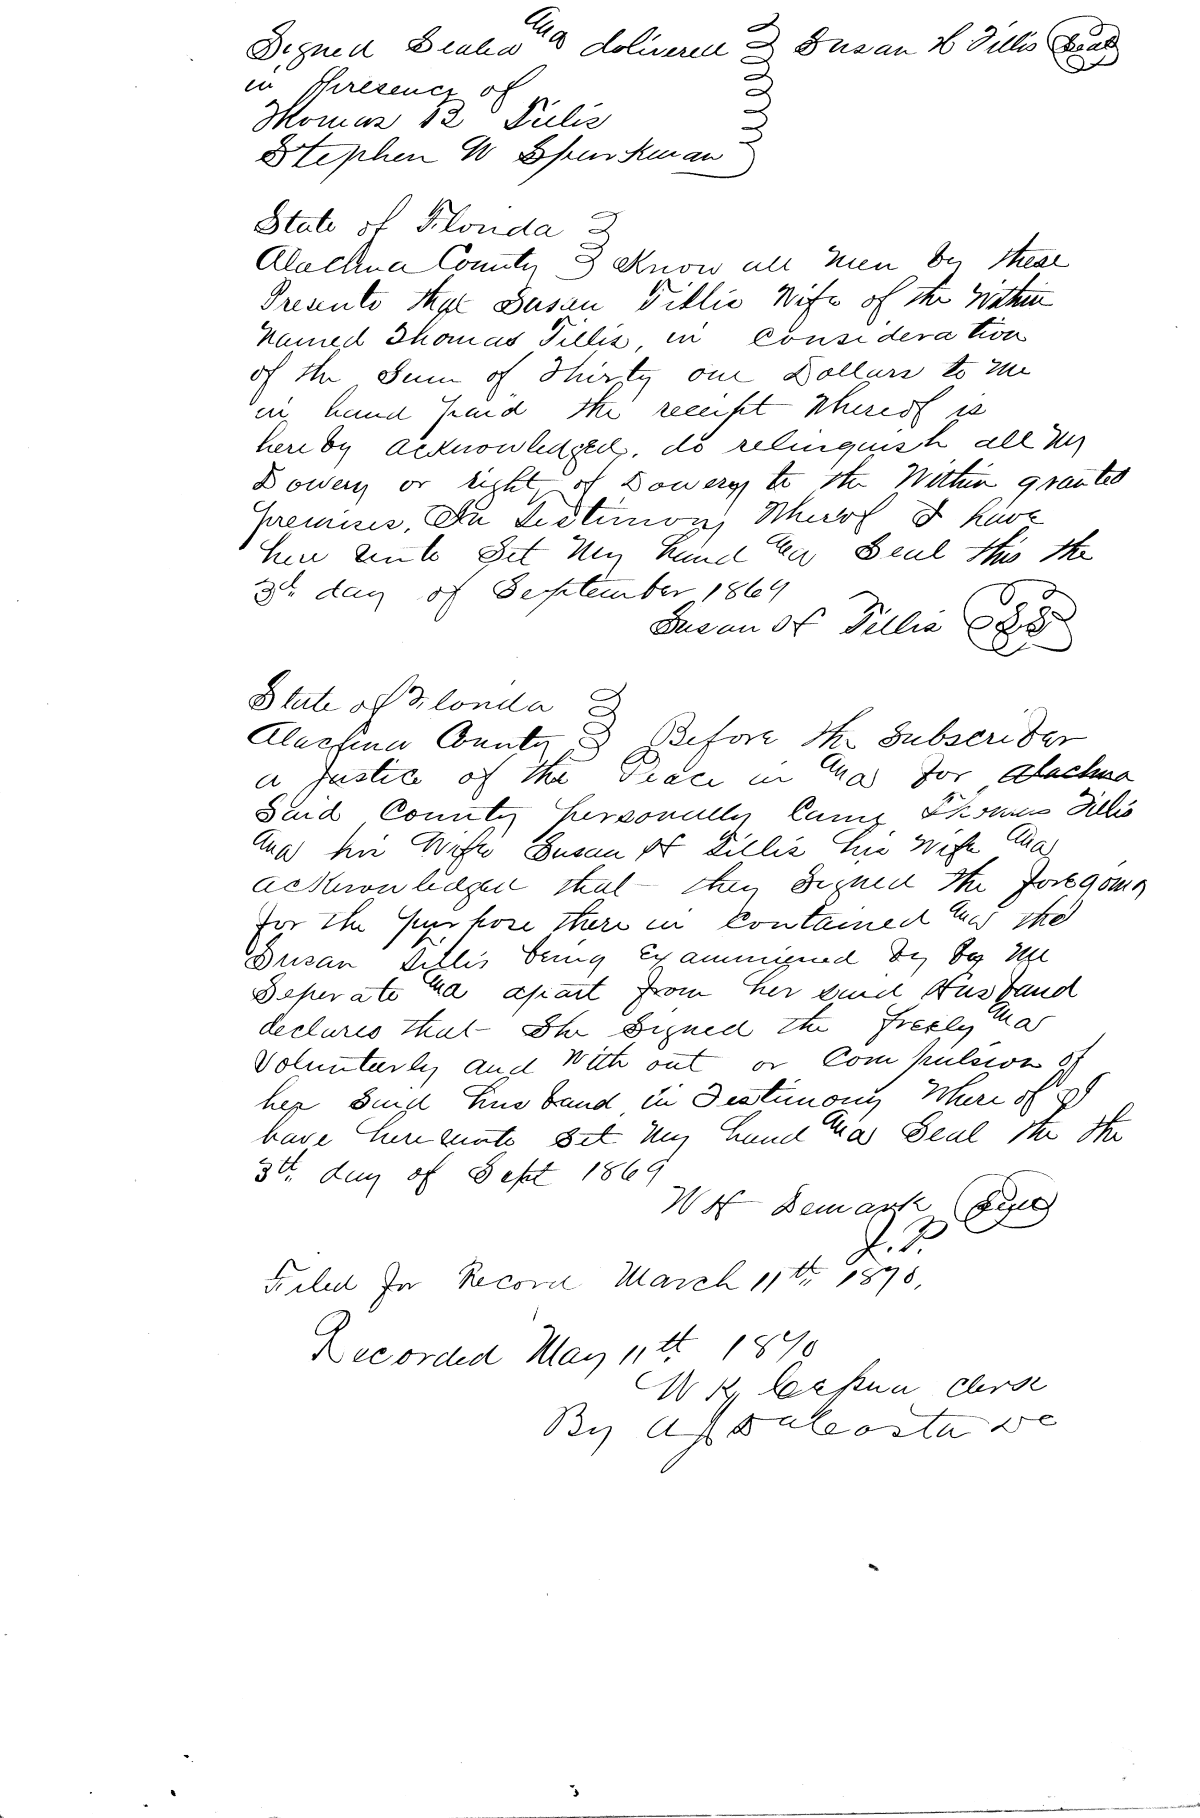 Signed Sealed and delivered } Susan H Tillis Seal
in Presence of
Thomas B Tillis
Stephen W Sparkman
State of Florida }
Alachua County } Know all Men by these
Presents that Susan Tillis Wife of the Within
Named Thomas Tillis, in consideration
of the Sum of Thirty one Dollars to me
in hand paid the receipt Whereof is
hereby acknowledged, do relinquish all My
Dowery or right of Dowery to the Within granted
premises, In Testimony Whereof I have
here unto Set My hand and Seal this the
3th day of September 1869
Susan H Tillis
State of Florida }
Alachua County } Before the Subscriber
a Justice of the Peace in and for Alachua
Said County personally Came Thomas Tillis
and his Wife Susan H Tillis his Wife and
acknowledged that they Signed the foregoing
for the purpose there in Contained and the
Susan Tillis being Exammined by by Me
Seperate and apart from her said Husband
declares that She Signed the freely and
Voluntarly and With out or Compulsion of
her Said husband in Testimony Where of I
have hereunto Set My hand and Seal the the
3th day of Sept 1869
W H Demark Seal
J. P.
Filed for Record March 11th 1870.
Recorded May 11th 1870
W K Cessna Clerk
By DC